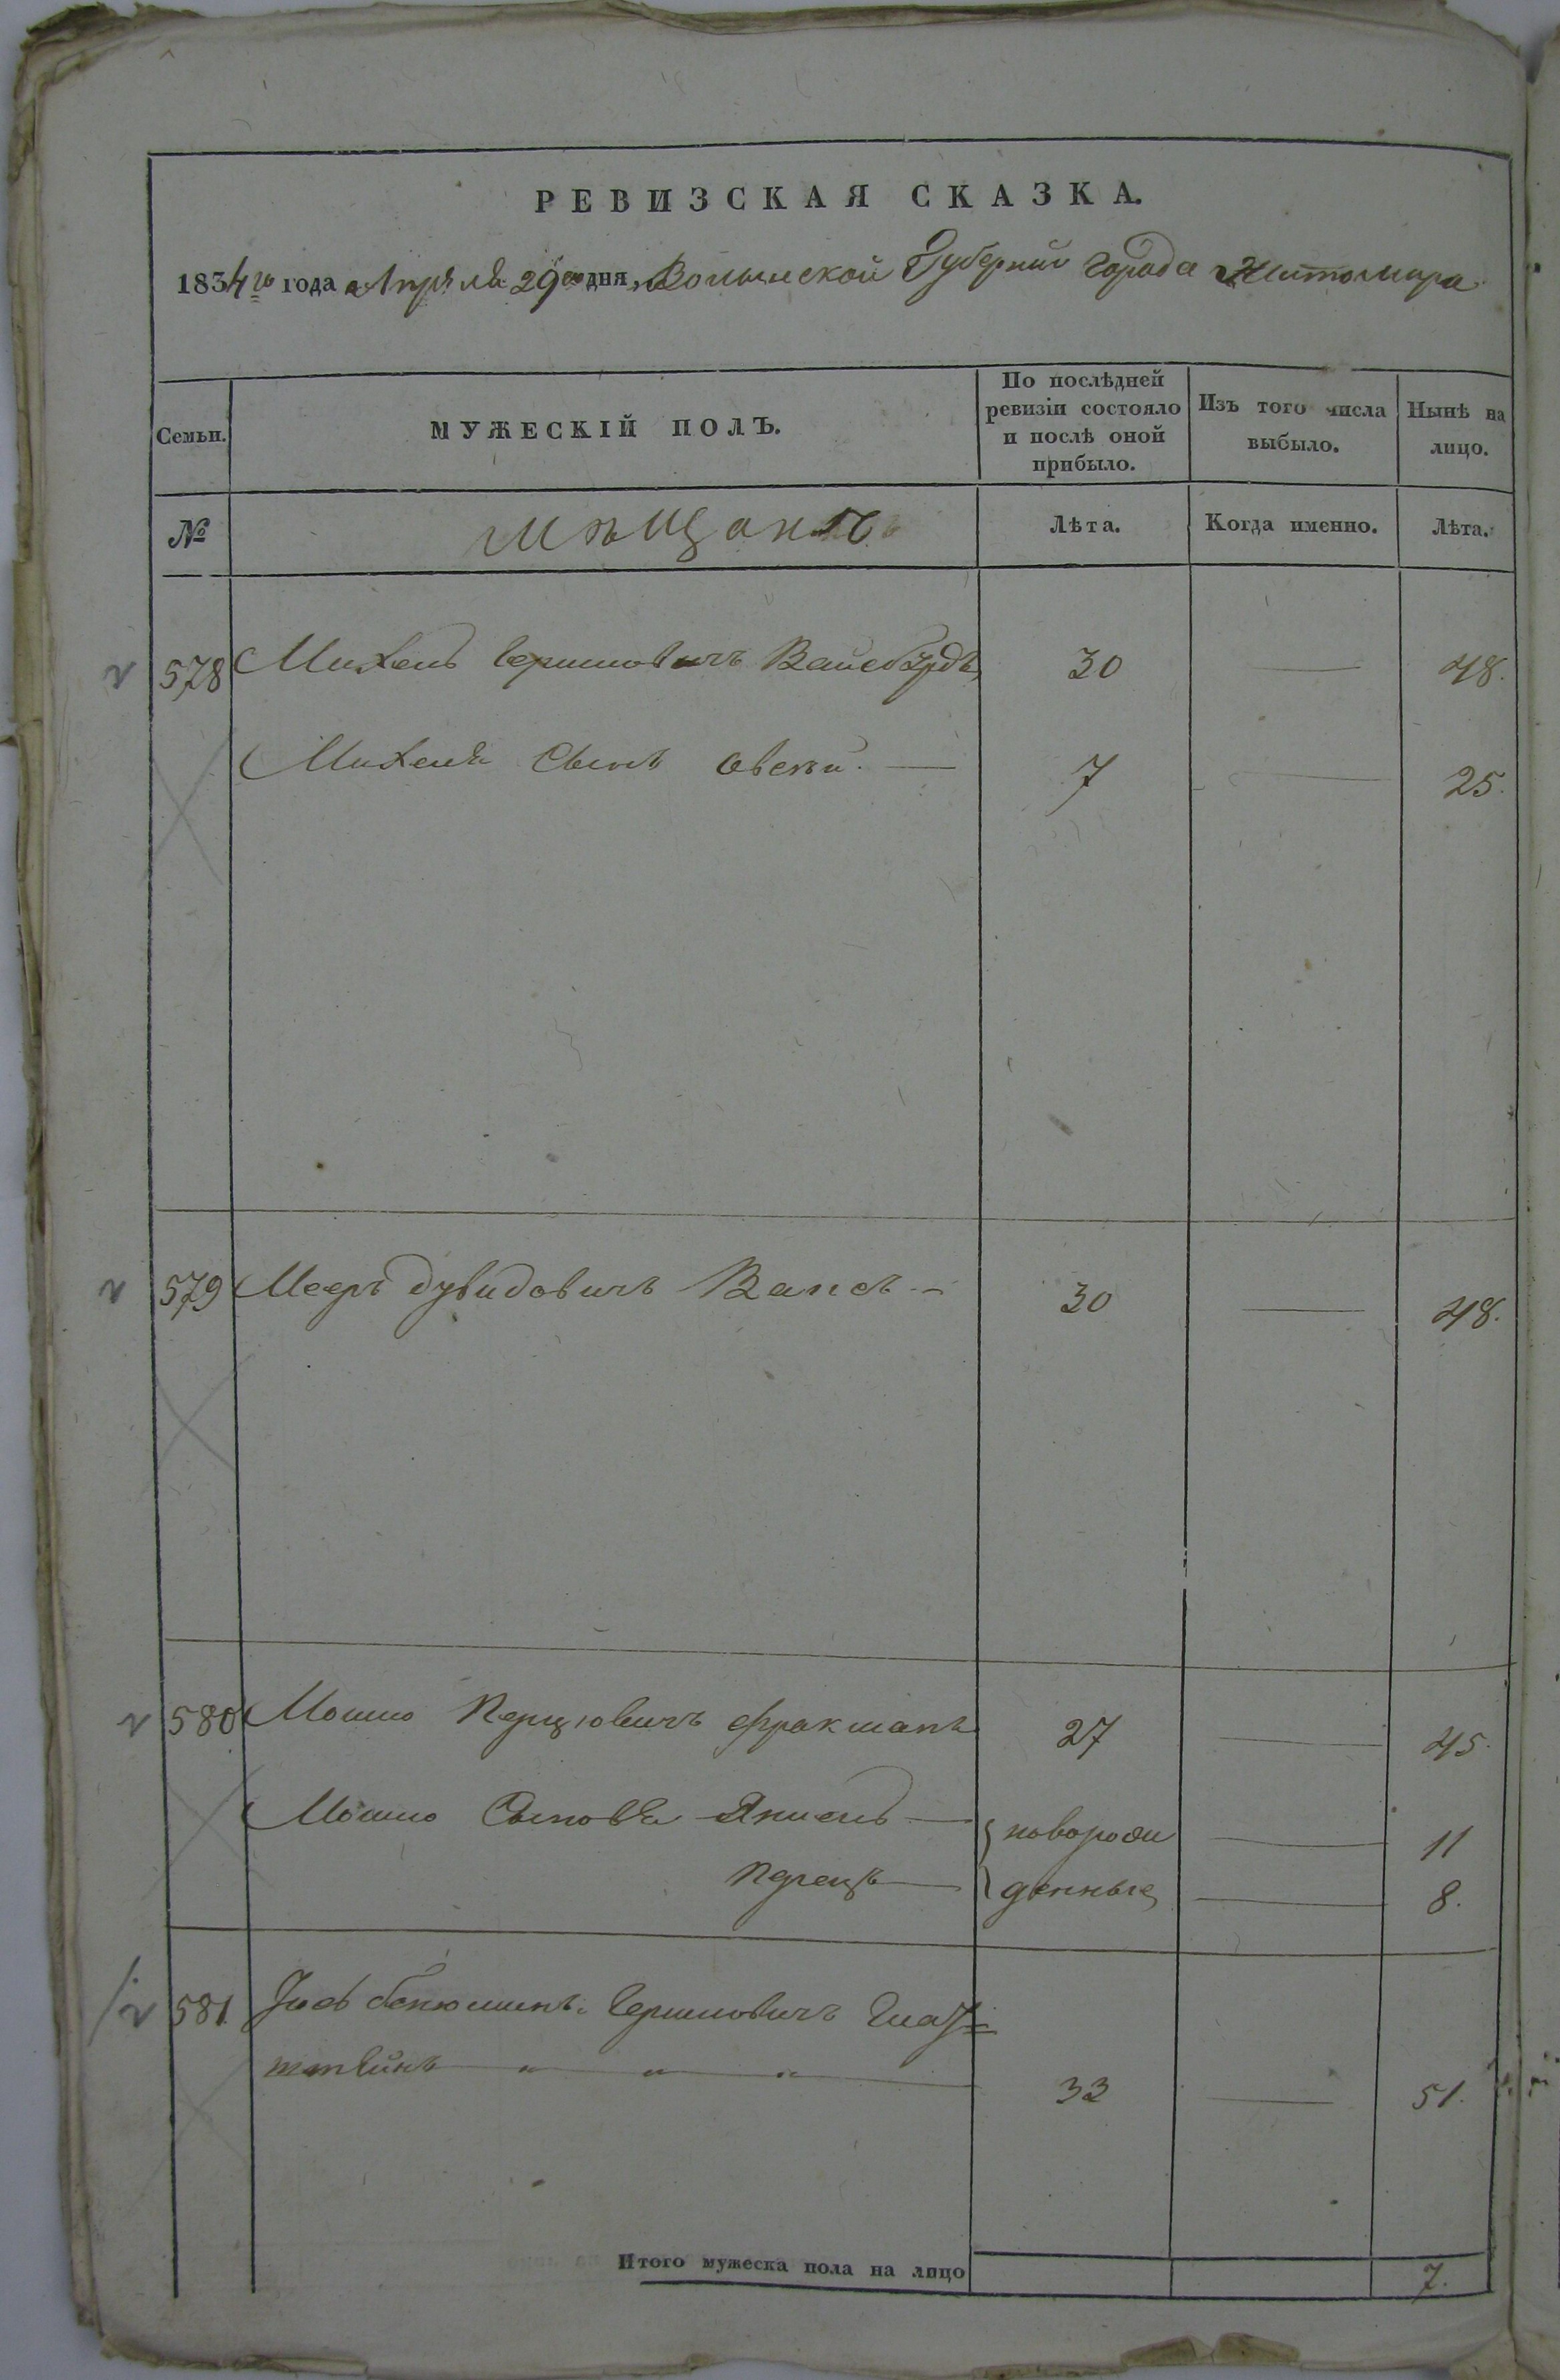 РЕВИЗСКАЯ СКАЗКА.
1834го года Апрѣля 29го дня, Волынской Губерніи города Житомира
Семьи.
МУЖЕСКІЙ ПОЛЪ.
По послѣдней
ревизіи состояло
и послѣ оной
прибыло.
Изъ того числа
выбыло.
Нынѣ на
лицо.
№
мѣщанъ
Лѣта.
Когда именно.
Лѣта.
578 Михель Гершковичъ 30 — 48.
Михеля Сынъ — 7 — 25.
579 Мееръ Дувидовичъ Вапсъ 30 — 48.
580 Мошко Перцовичъ Фракманъ 27 — 45.
Мошко Сыновья Янкель — новорож — 11
Перецъ — денные — 8.
581 Іось Бенюминъ Гершковичъ Гла=
штейнъ " " " 33 — 51.
Итого мужеска пола на лицо 7.